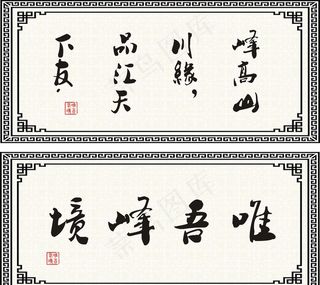 峰高山
川緣，
品江天
下友.
唯吾峰境